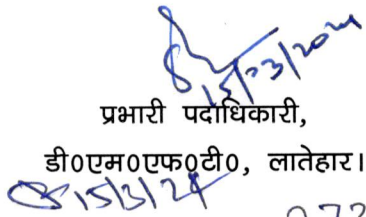 15/03/2024
प्रभारी पदाधिकारी,
डी०एम०एफ०टी०, लातेहार।
15/3/24